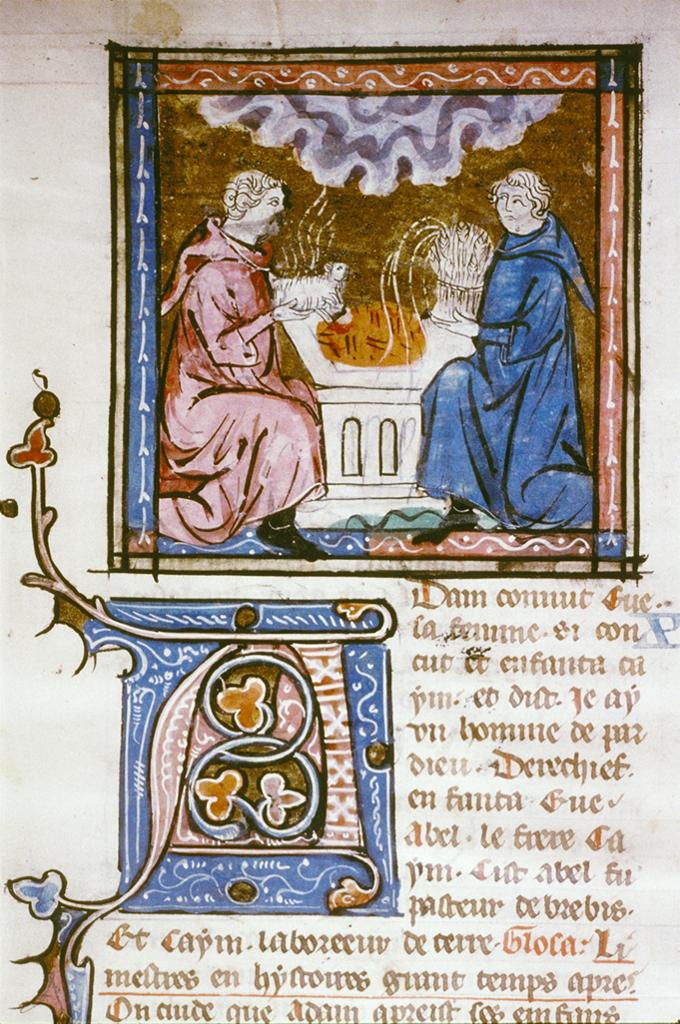 Dam connut Eue.
la femme. et con X
cut et enfanta ca
ym. et dist. Je ay
vn homme de par
dieu. Derechief.
en fanta Eue
Abel. le frere Ca
ym. Cist abel fu
pasteur de brebis.
Et Caym. laboreeur de terre. Glosa. Li
mestres en hystoires grant temps apres
On cuide que adam aprist ses enfans